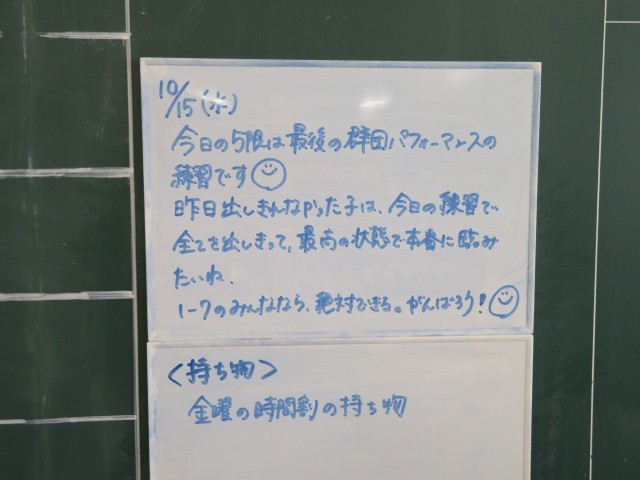 10/15(水)
今日の5限は最後の群団パフォーマンスの
練習です
昨日出しきれなかった子は、今日の練習で
全てを出しきって、最高の状態で本番に臨み
たいね、
1-7のみんななら、絶対できる。がんばろう!
<持ち物>
金曜の時間割の持ち物